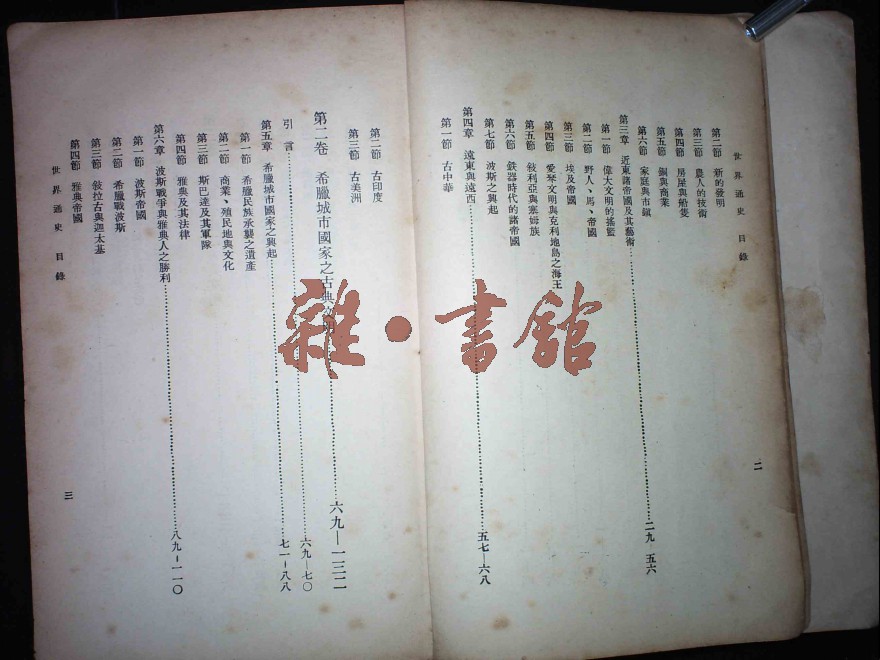 世界通史 目錄
第二節 新的發明
第三節 農人的技術
第四節 房屋與船隻
第五節 銅與商業
第六節 家庭與市鎭
第三章 近東諸帝國及其藝術……二九 五六
第一節 偉大文明的搖籃
第二節 野人、馬、帝國
第三節 埃及帝國
第四節 愛琴文明與克利地島之海王
第五節 敍利亞與塞姆族
第六節 鉄器時代的諸帝國
第七節 波斯之興起
第四章 遠東與遠西……五七—六八
第一節 古中華
二
第二節 古印度
第三節 古美洲
第二卷 希臘城市國家之古典文明……六九—一三二
引言……六九—七〇
第五章 希臘城市國家之興起……七一—八八
第一節 希臘民族承襲之遺產
第二節 商業、殖民地與文化
第三節 斯巴達及其軍隊
第四節 雅典及其法律
第六章 波斯戰爭與雅典人之勝利……八九—一一〇
第一節 波斯帝國
第二節 希臘戰波斯
第三節 敍拉古與迦太基
第四節 雅典帝國
世界通史 目錄
三
雜·書館